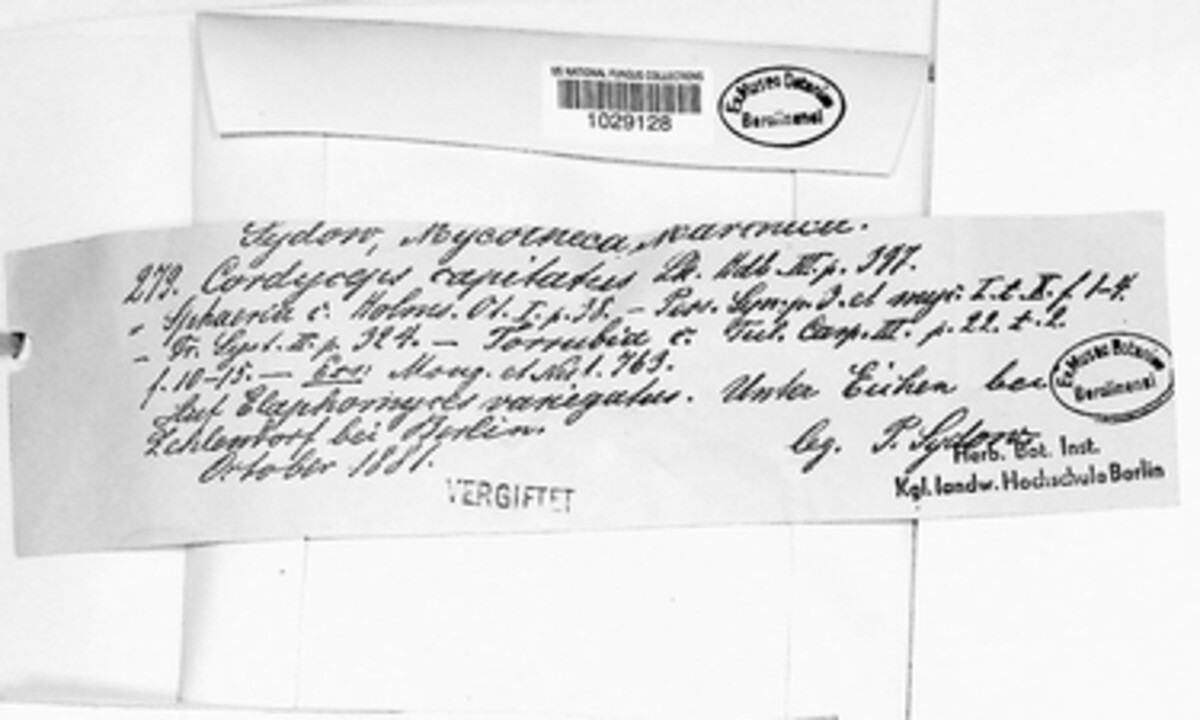 US NATIONAL FUNGUS COLLECTIONS
1029128
Ex Museo Botanico
Berolinensi
Sydow, Mycotheca Marchica.
279. Cordyceps capitatus Lk. Hdb. III. p. 397.
Sphaeria c. Holms. Ot. I. p. 38. – Pers. Syn. p. 3. et myc. I. t. X. f. 1-4.
– Fr. Syst. II. p. 324. – Torrubia c. Tul. Carp. III. p. 22. t. 2.
f. 10-15. – Exs: Moug. et Nest. 763.
Auf Elaphomyces variegatus. Unter Eichen bei
Ex Museo Botanico
Berolinensi
Zehlendorf bei Berlin.
October 1881. leg. P. Sydow
Herb. Bot. Inst.
Kgl. landw. Hochschule Berlin
VERGIFTET